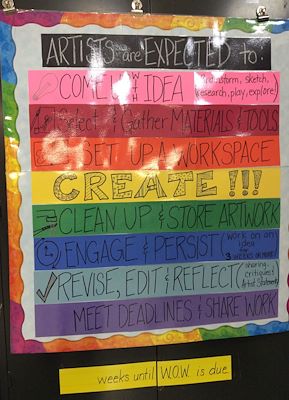 ARTISTS are EXPECTED to:
COME UP W/ AN IDEA (brainstorm, sketch,
research, play, explore)
Select & Gather MATERIALS & TOOLS
SET UP A WORKSPACE
CREATE!!!
CLEAN UP & STORE ARTWORK
ENGAGE & PERSIST (work on an
idea for
3 WEEKS OR MORE)
REVISE, EDIT & REFLECT (sharing,
critiques &
Artist Statements)
MEET DEADLINES & SHARE WORK
weeks until W.O.W. is due